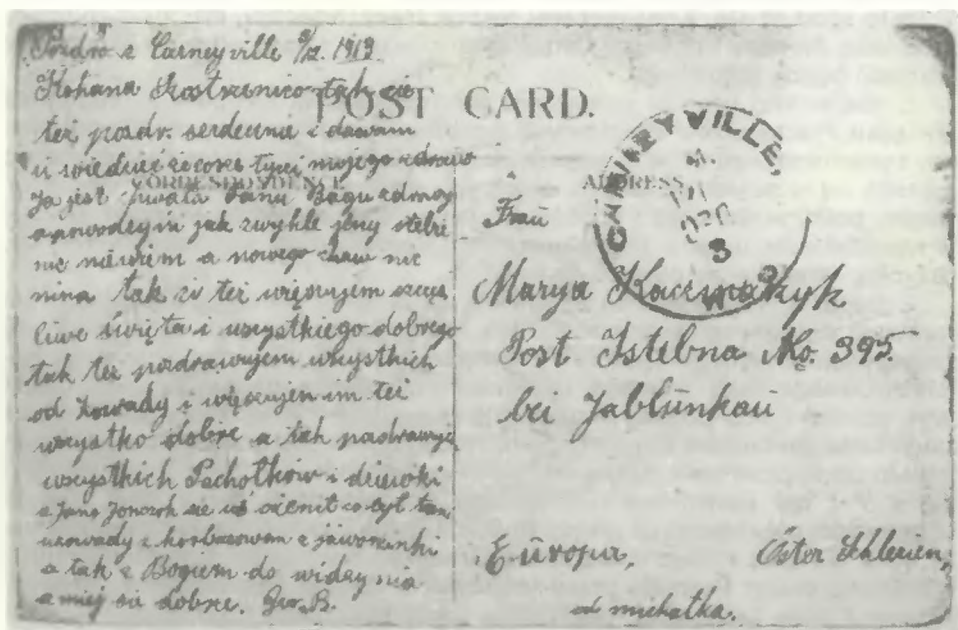 Pozdro z Carneyville 8/12. 1913.
Kohana Szostrzenico tak cie
też pozdr. serdeczna i dawam
ci wiedzieć że córes tyci mojego zdrowio
Ja jest chwała Panu Bogu zdrowy
a powodzymi jak zwykle jeny
nic niewiem a nowego nic
nima tak zi też więszujem szczęś
liwe święta i wszystkiego dobrego
tak też pozdrawujem wszystkich
od kowady i więszujem im też
wszystko dobre a tak pozdrawuję
wszystkich Pachołków i dziwoki
a Jano Jonczok sie uś ożenił co był tam
ukowady z z jaworzinki
a tak z Bogiem do widzynia
a miej sie dobrze. B.
POST CARD.
CORRESPONDENCE
ADDRESS
CARNEYVILLE,
DEC
3
WYO
Frau
Marya Kaczmarzyk
Post Istebna No. 395.
bei Jablunkau
Europa, Östor Schlesien,
od michałka.